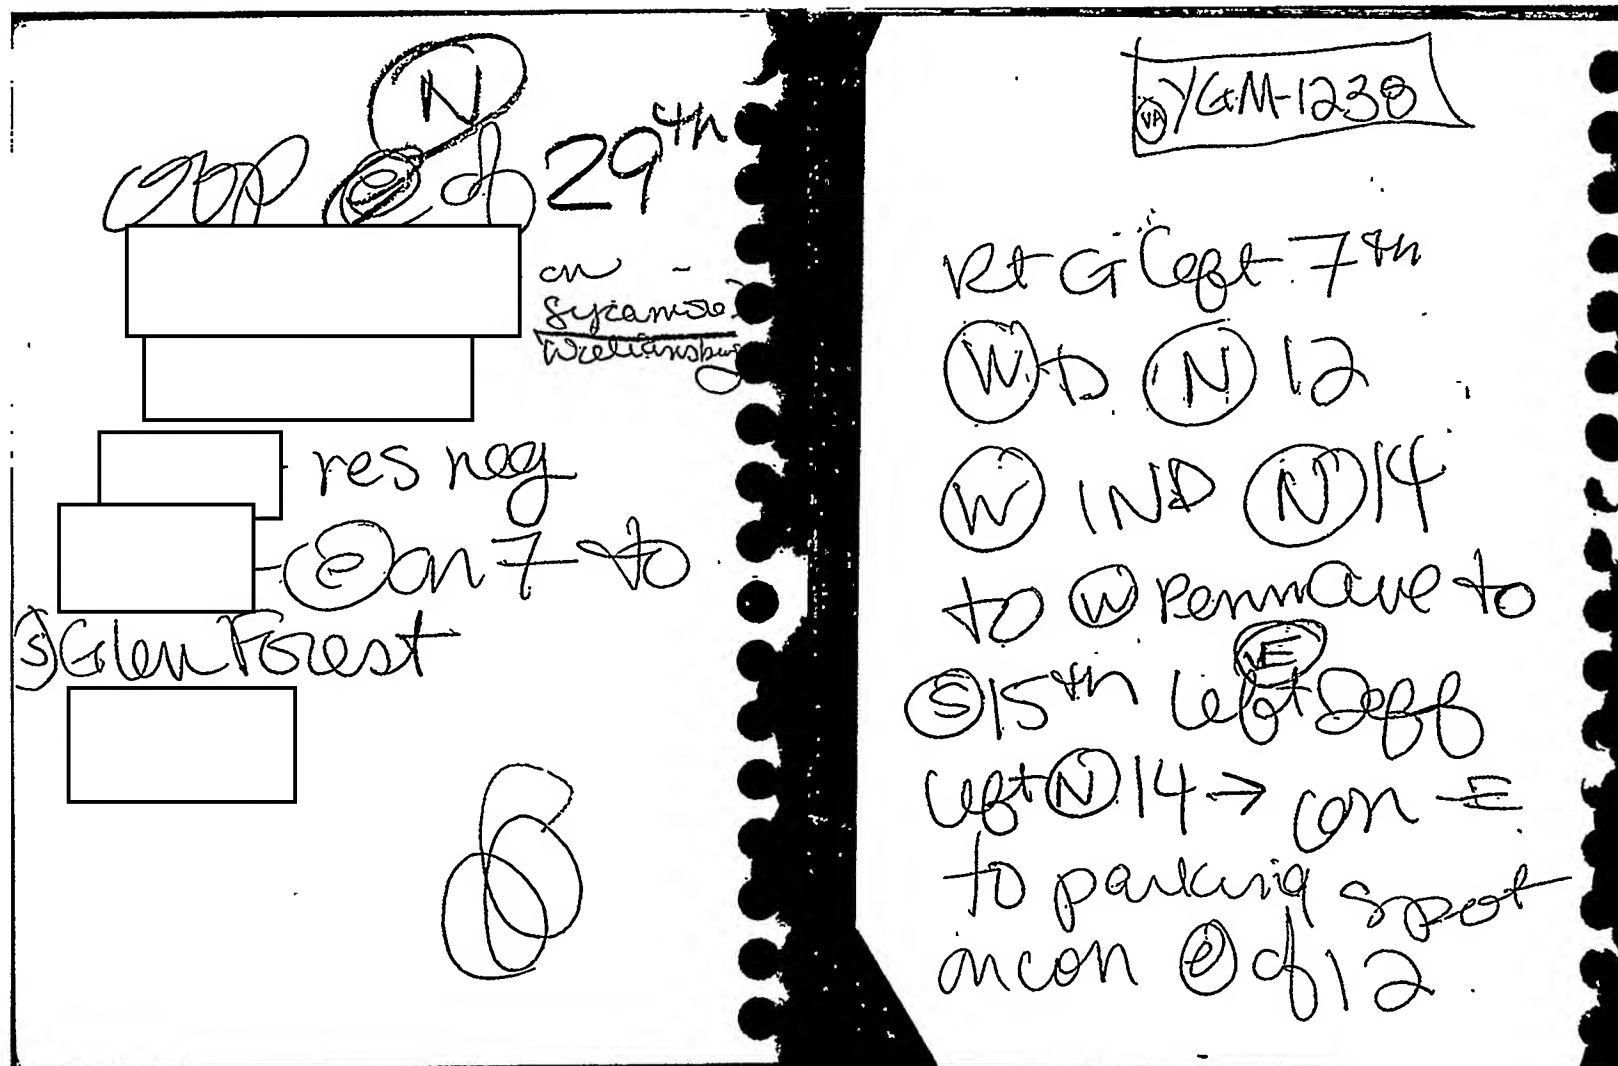 N
opp e of 29th
on -
Sycamore
Williamsburg
res neg
- e on 7 to
S Glen Forest
VA YGM-1238
Rt G left 7th
W D N 12
W IND N 14
to W Penn Ave to
S 15th left E Deff
left N 14 → con E
to parking spot
on con e of 12